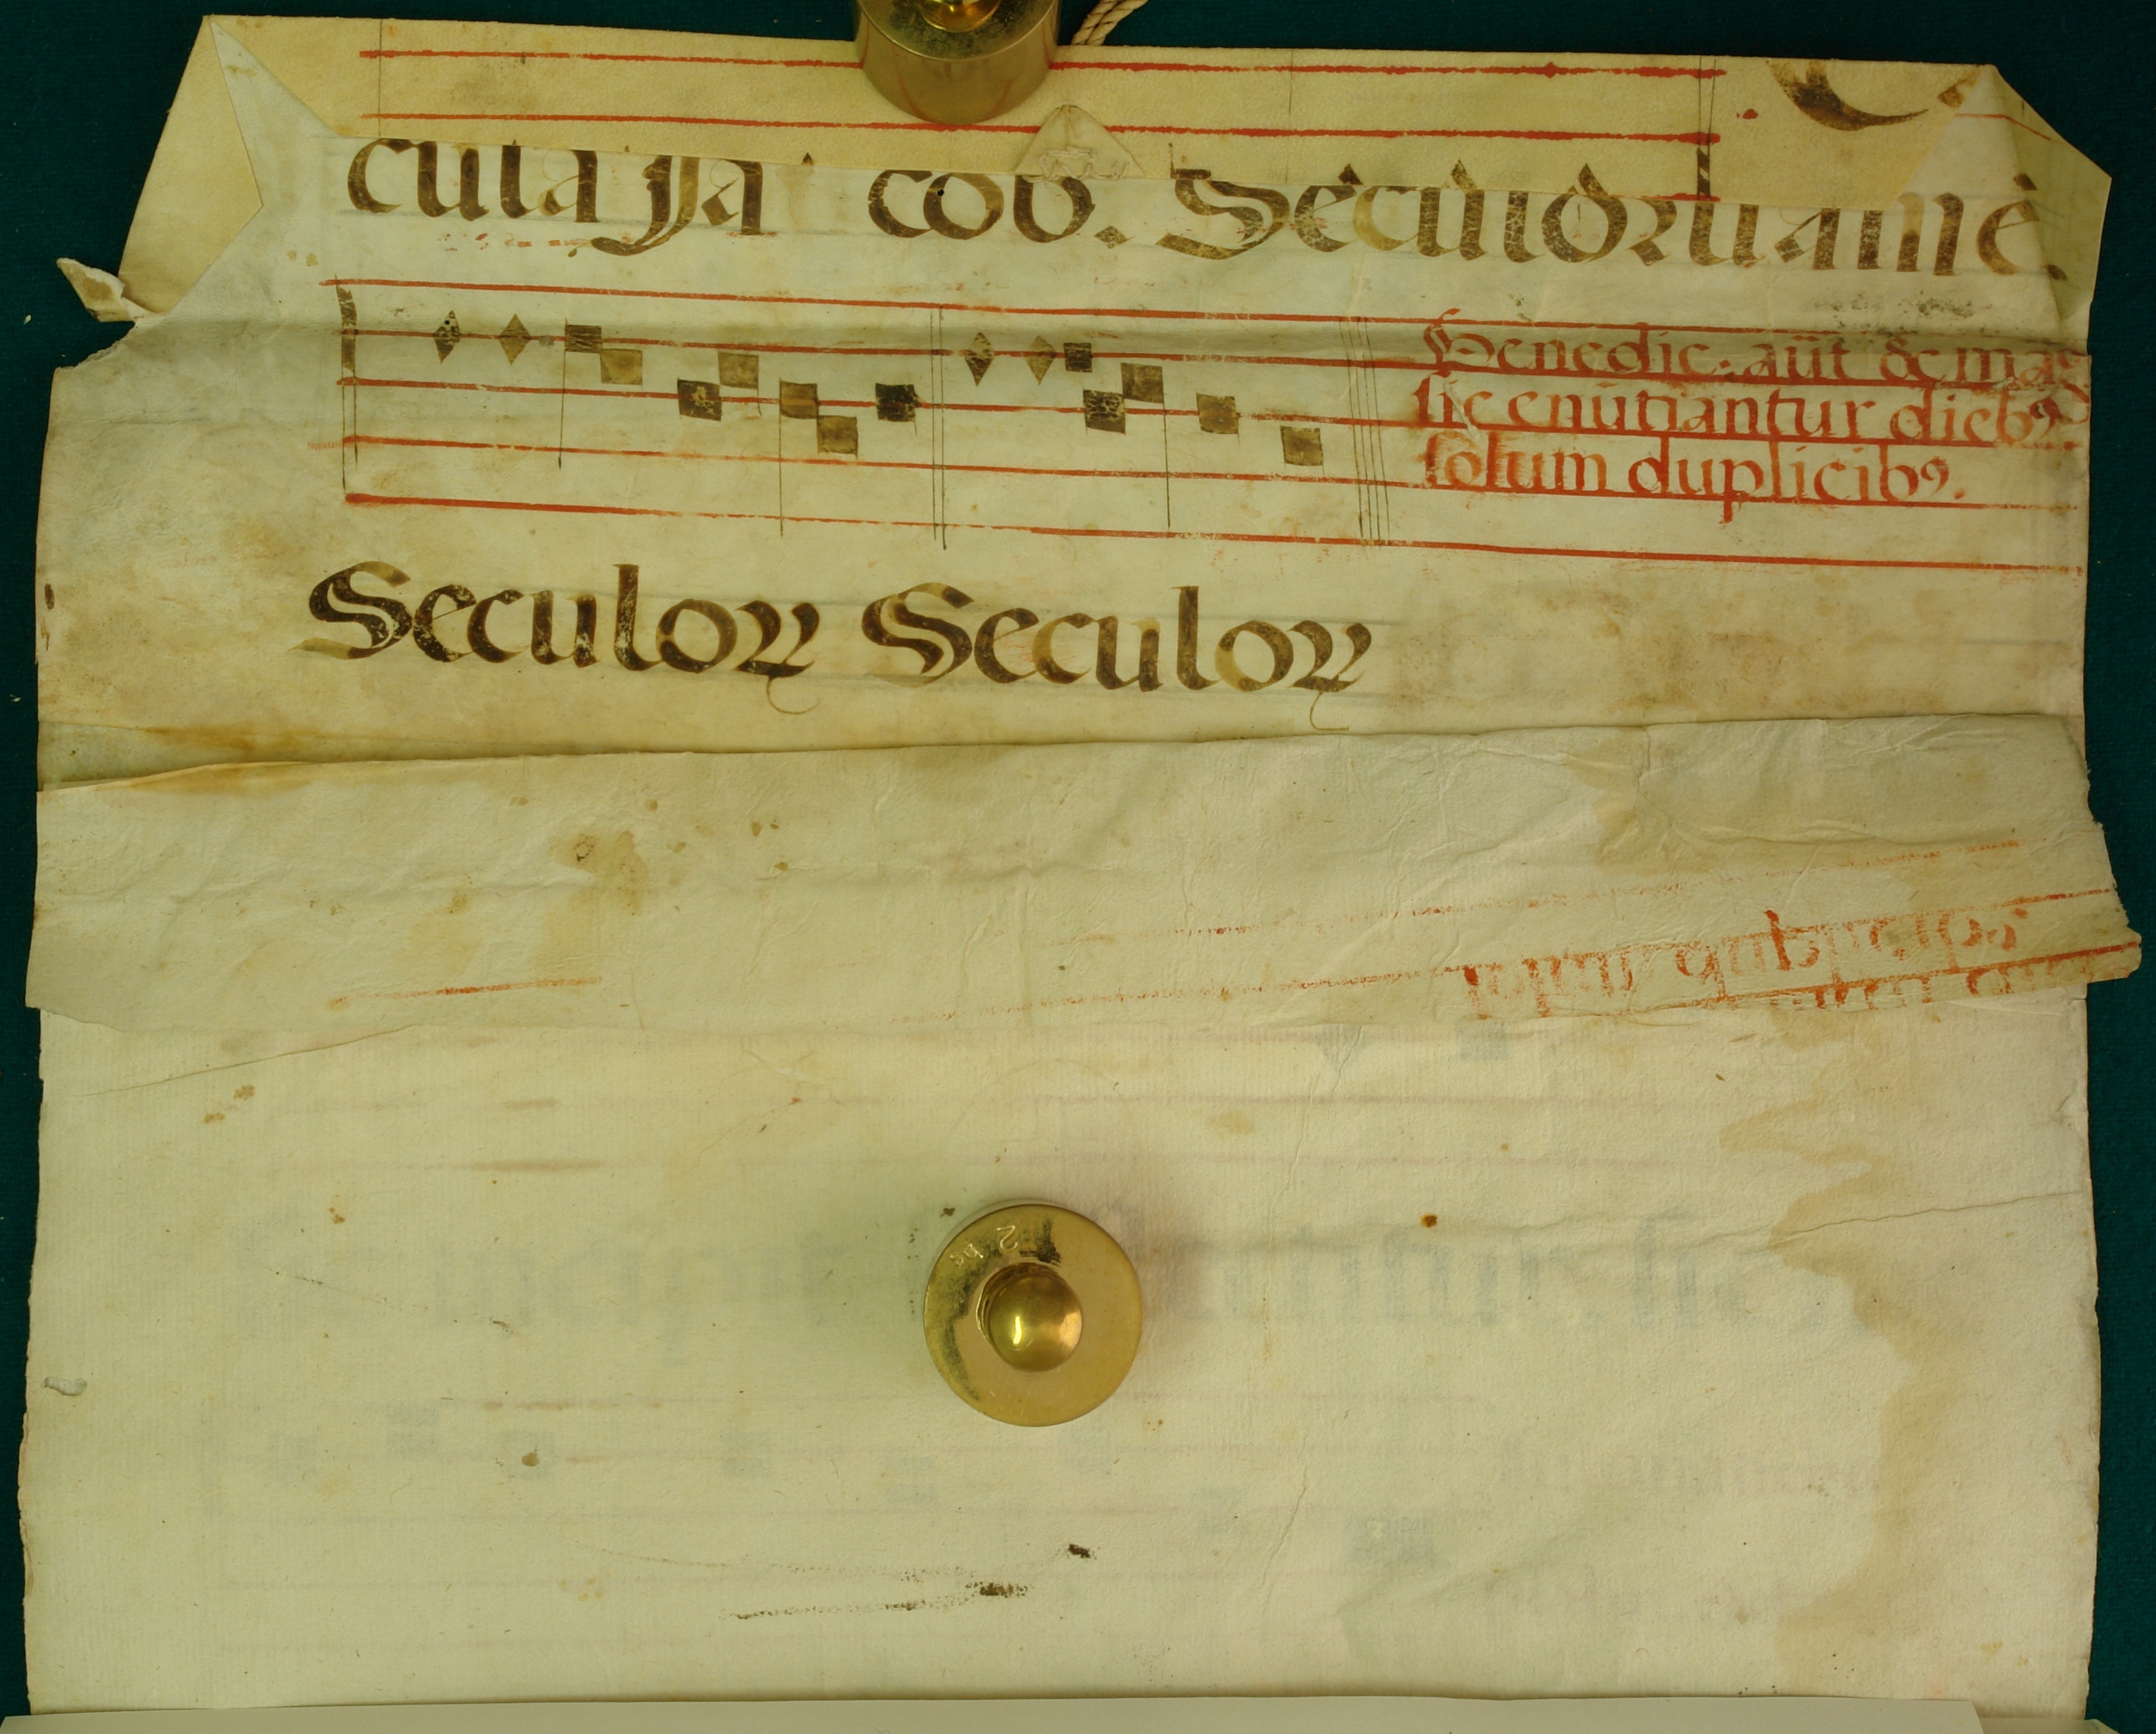 cula Ja cob. Seculoru amē.
Benedic. aūt & mag
sic enūtiantur diebꝰ
solum duplicibꝰ.
Seculoꝝ Seculoꝝ